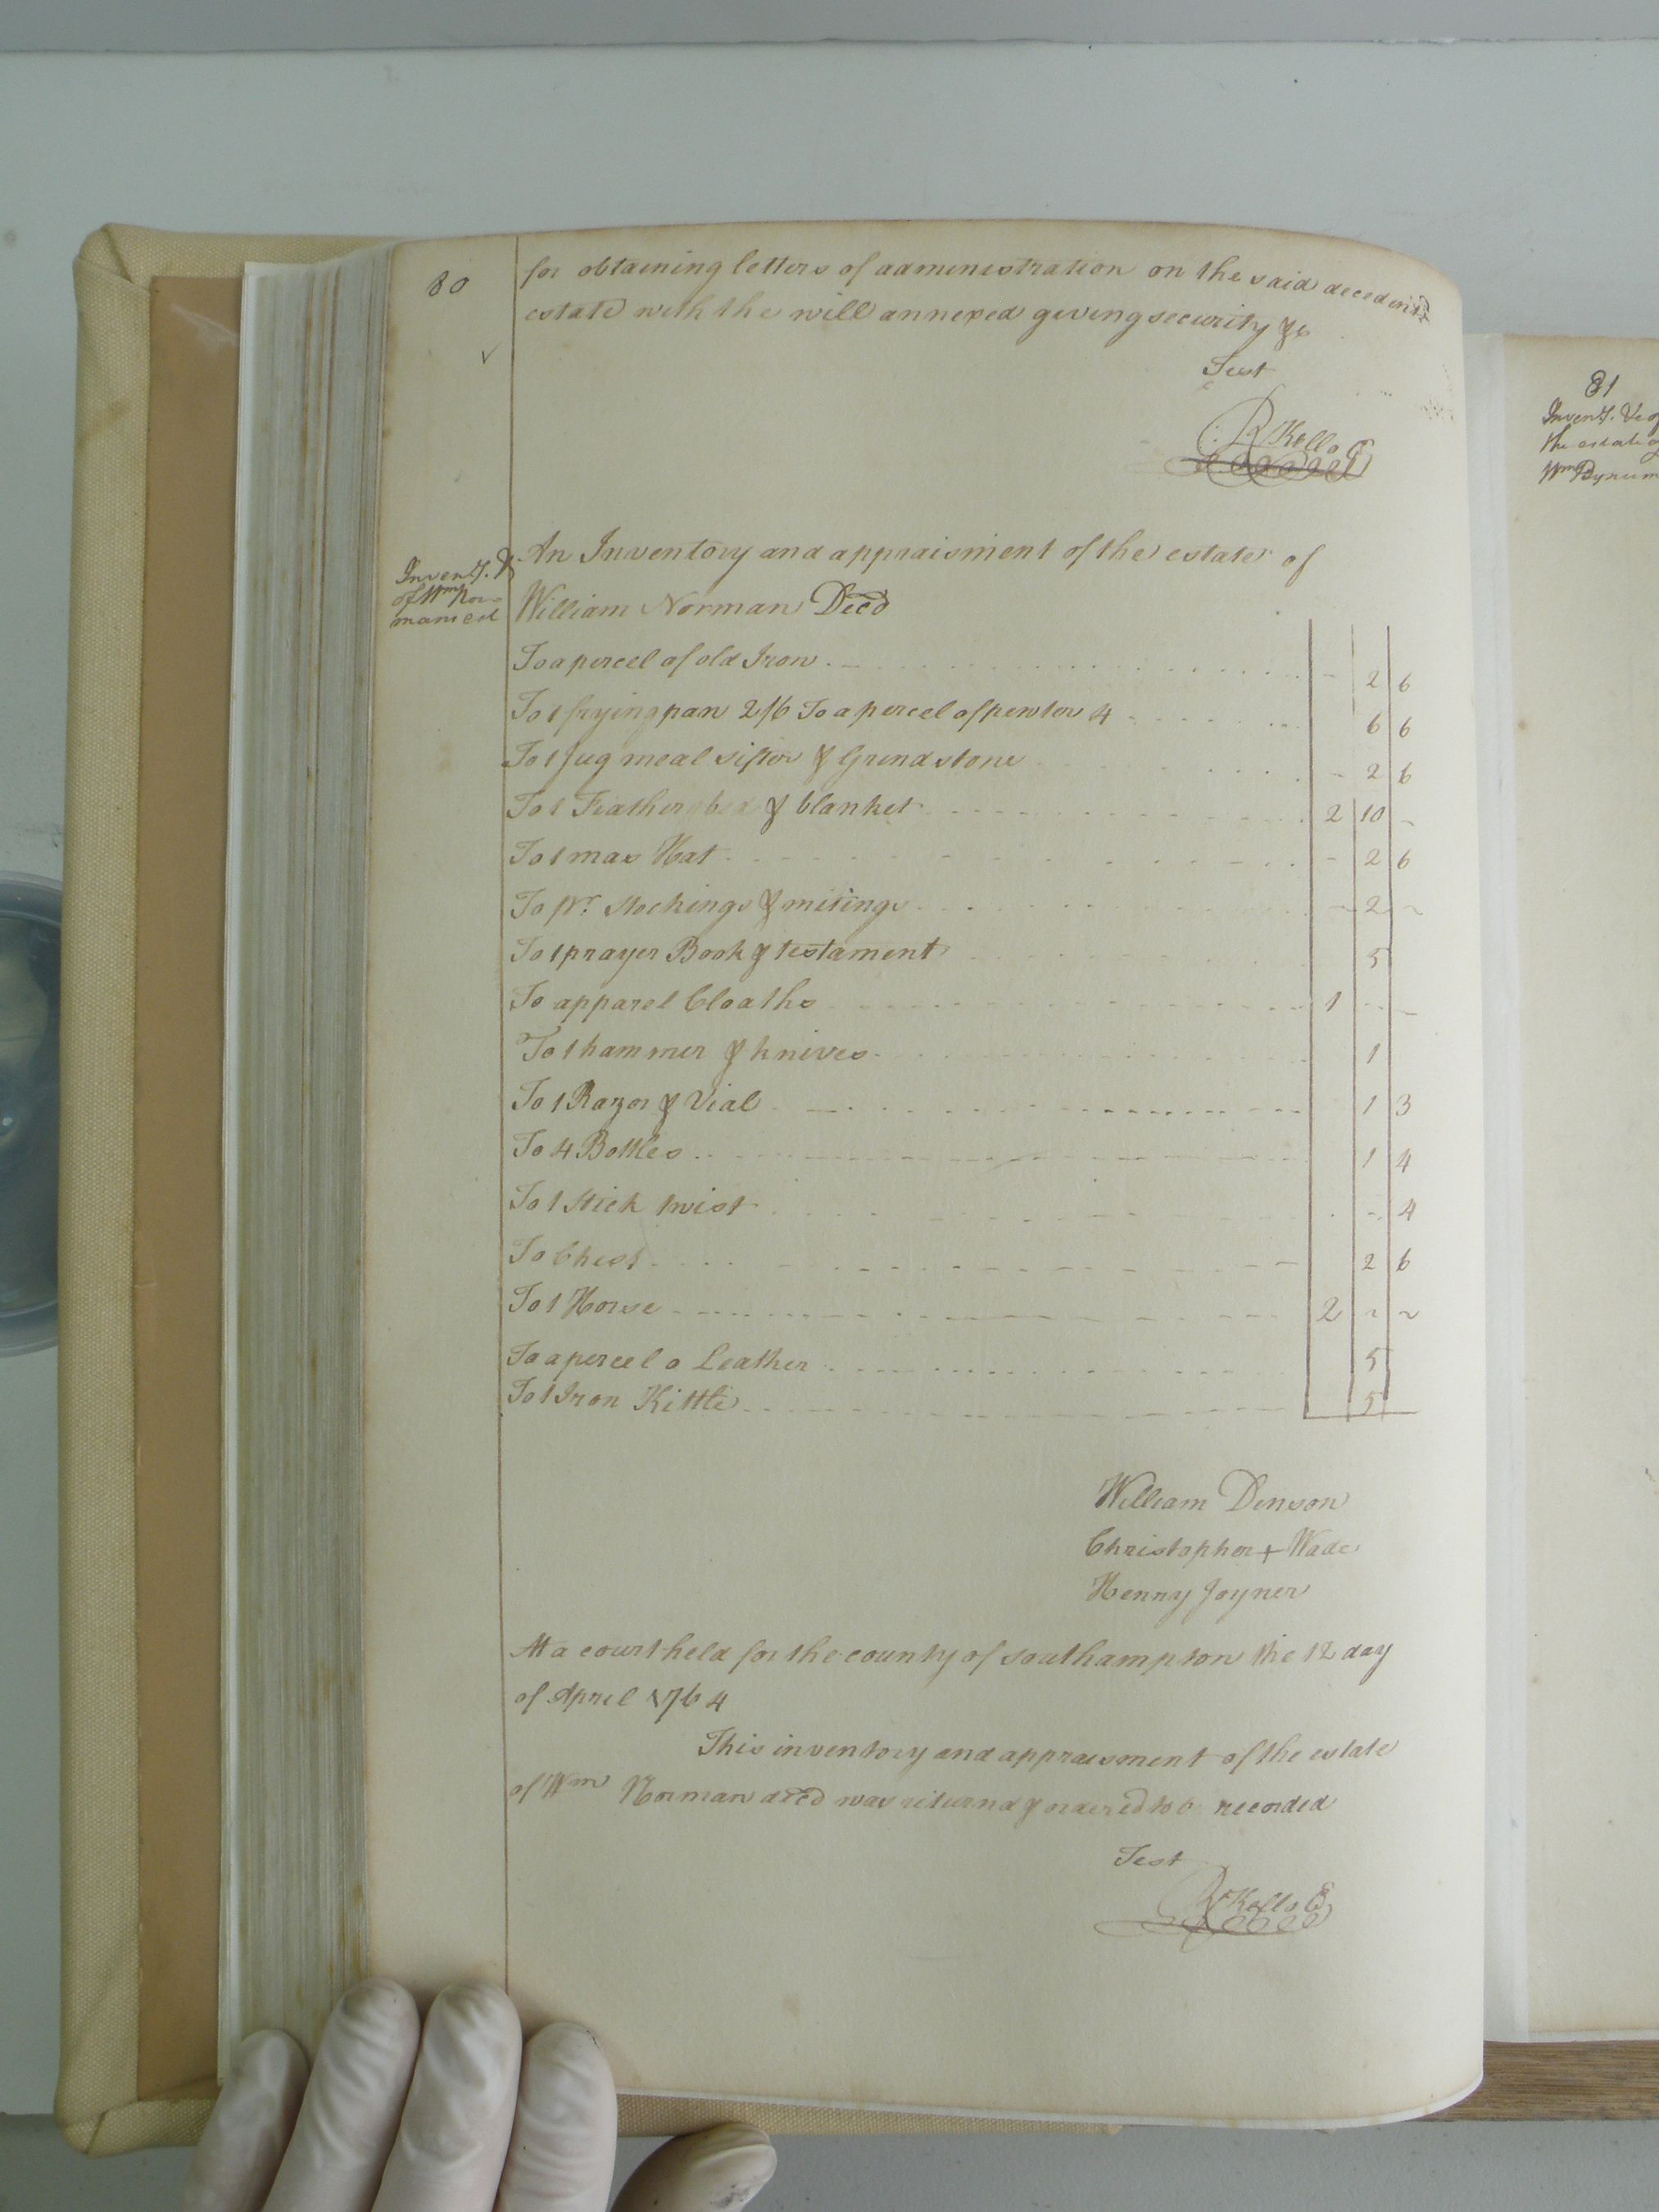 80
for obtaining letters of administration on the said decedents
estate with the will annexed giving security &c
Test
R Kello C
Invent. &
of Wm Nor-
mans est
An Inventory and appraisment of the estate of
William Norman Decd
To a percel of old Iron - 2 6
To 1 frying pan 2/6 To a percel of pewter 4 6 6
To 1 Jug meal sifter & Grindstone - 2 6
To 1 Feather bed & blanket 2 10 -
To 1 mas Hat - 2 6
To pr. stockings & mitings - 2 -
To 1 prayer Book & testament 5
To apparel Cloaths 1 - -
To 1 hammer & knives 1
To 1 Razor & Vial 1 3
To 4 Bottles 1 4
To 1 stick twist - 4
To Chest 2 6
To 1 Horse 2 ~ ~
To a percel o Leather 5
To 1 Iron Kittle 5
William Denson
Christopher + Wade
Henry Joyner
At a court held for the county of southampton the 12 day
of April 1764
This inventory and appraisment of the estate
of Wm Norman decd was returnd & ordered to b recorded
Test
R Kello C
81
Invent. &c of
the estate of
Wm Bynum